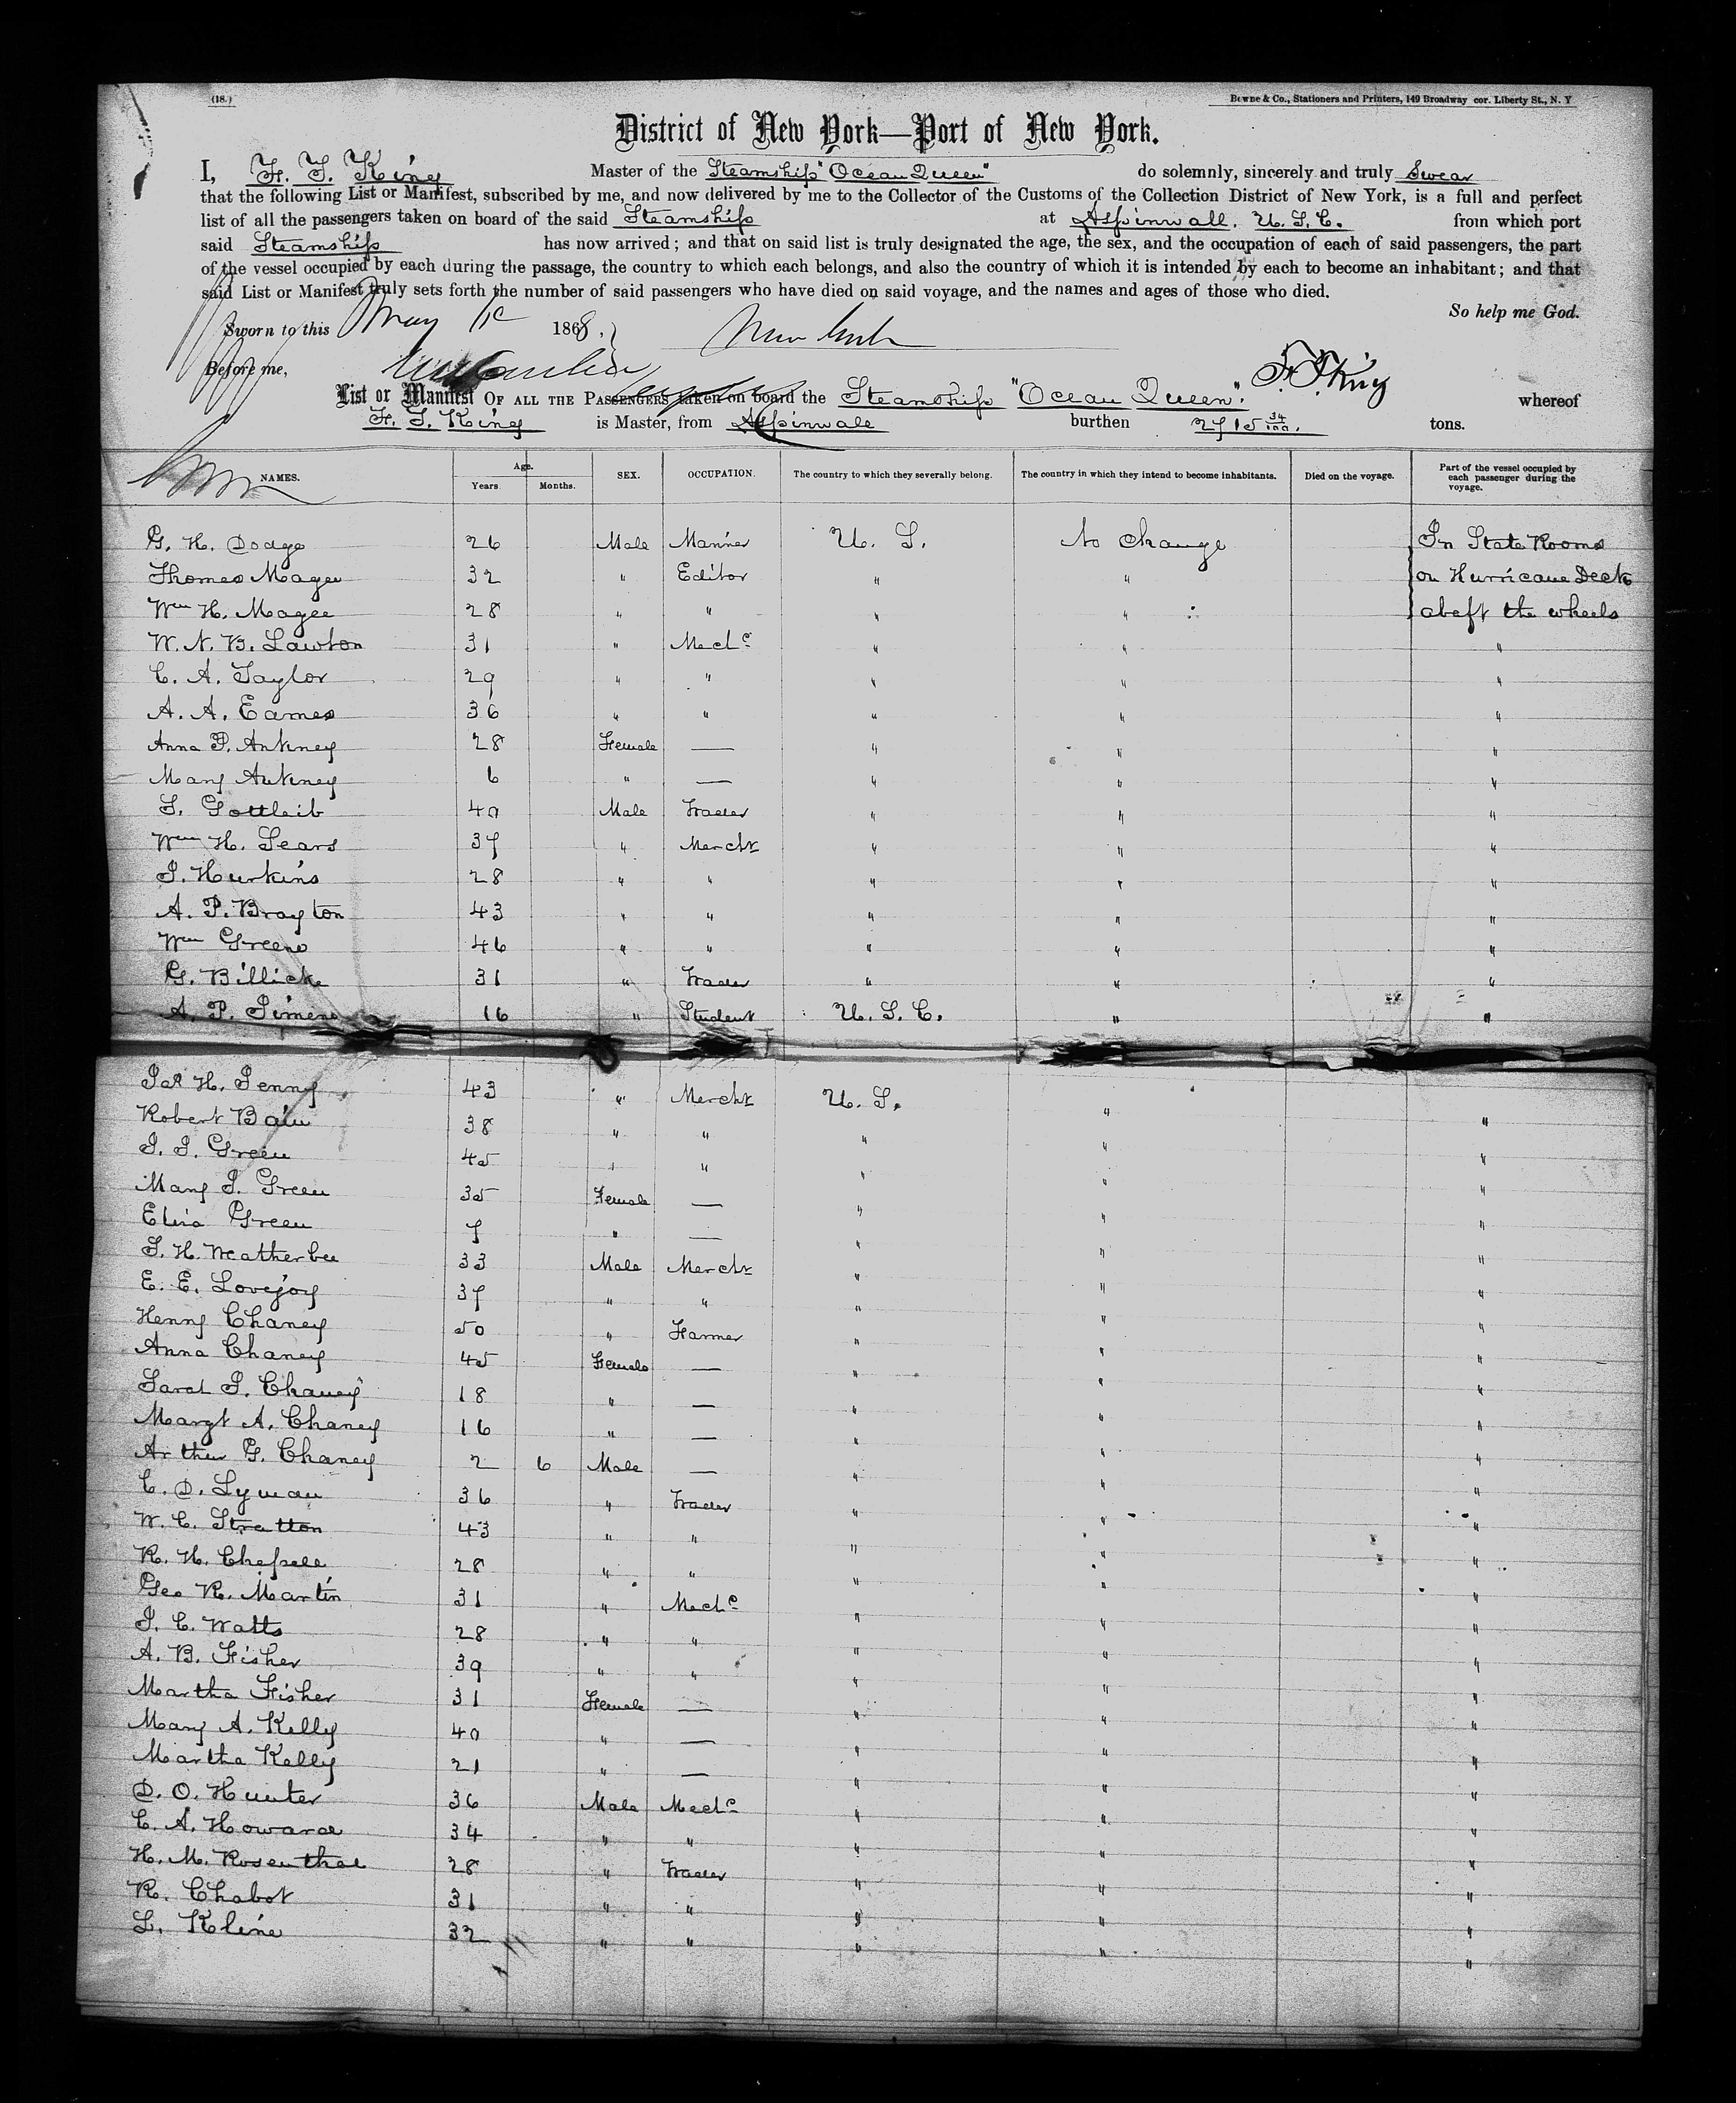 (18.)
Bowne & Co., Stationers and Printers, 149 Broadway cor. Liberty St., N. Y
District of New York—Port of New York.
I, F. T. King Master of the Steamship "Ocean Queen" do solemnly, sincerely and truly Swear
that the following List or Manifest, subscribed by me, and now delivered by me to the Collector of the Customs of the Collection District of New York, is a full and perfect
list of all the passengers taken on board of the said Steamship at Aspinwall. U. S. C. from which port
said Steamship has now arrived; and that on said list is truly designated the age, the sex, and the occupation of each of said passengers, the part
of the vessel occupied by each during the passage, the country to which each belongs, and also the country of which it is intended by each to become an inhabitant; and that
said List or Manifest truly sets forth the number of said passengers who have died on said voyage, and the names and ages of those who died.
So help me God.
Sworn to this May 1868,
Before me,
F. T. King
List or Manifest OF ALL THE PASSENGERS taken on board the Steamship "Ocean Queen". whereof
F. T. King is Master, from Aspinwall burthen 2715 34/100. tons.
NAMES. Age. Years. Months. SEX. OCCUPATION. The country to which they severally belong. The country in which they intend to become inhabitants. Died on the voyage. Part of the vessel occupied by each passenger during the voyage.
G. H. Dodge 26 Male Mariner U. S. No change In State Rooms
Thomas Magee 32 " Editor " " on Hurricane Deck
Wm H. Magee 28 " " " " abaft the wheels
W. N. B. Lawton 31 " Mechc " " "
C. A. Taylor 29 " " " " "
A. A. Eames 36 " " " " "
Anna P. Ankney 28 Female — " " "
Mary Ankney 6 " — " " "
S. Gottleib 40 Male Trader " " "
Wm H. Sears 37 " Mercht " " "
J. Hurkins 28 " " " " "
A. P. Brayton 43 " " " " "
Wm Greene 46 " " " " "
G. Billicke 31 " Trader " " "
A. P. Jimeno 16 " Student U. S. C. " "
Jas H. Jenny 43 " Mercht U. S. " "
Robert Bain 38 " " " " "
J. J. Green 45 " " " " "
Mary J. Green 35 Female — " " "
Eliza Green 7 " — " " "
J. H. Weatherbee 33 Male Mercht " " "
E. E. Lovejoy 37 " " " " "
Henry Chaney 50 " Farmer " " "
Anna Chaney 45 Female — " " "
Sarah J. Chaney 18 " — " " "
Margt A. Chaney 16 " — " " "
Arthur G. Chaney 2 6 Male — " " "
C. D. Lyman 36 " Trader " " "
W. C. Stratton 43 " " " " "
R. H. Chapell 28 " " " " "
Geo R. Martin 31 " Mechc " " "
J. C. Watts 28 " " " " "
A. B. Fisher 39 " " " " "
Martha Fisher 31 Female — " " "
Mary A. Kelly 40 " — " " "
Martha Kelly 21 " — " " "
D. O. Hunter 36 Male Mechc " " "
C. A. Howard 34 " " " " "
H. M. Rosenthal 28 " Trader " " "
R. Chabot 31 " " " " "
L. Kline 32 " " " " "